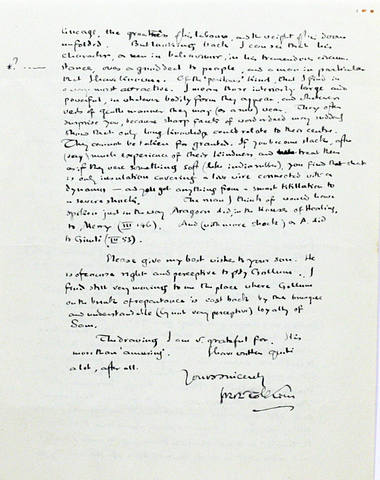 lineage, the greatness of his labours, and the weight of his doom
unfolded. But looking back I can see that his
character, as seen in behaviour, in his tremendous circum-
stance, owes a good deal to people, and a man in particular
that I have known. Of the 'portrait' kind, that I find in
every most attractive. I mean those interiorly large and
powerful, in whatever bodily form they appear, and whatever
veils of gentle manners they may (or a not) wear. They often
surprise you, because sharp facets of word or deed may suddenly
show that only long knowledge could relate to their centre.
They cannot be taken for granted. If you become slack, after
(say) much experience of their kindness and treat them
as if they were something soft (like indiarubber), you find that
is only insulation covering a live wire connected with a
dynamo — and you get anything from a smart titillation to
a severe shock. The man I think of would have
spoken just in the way Aragorn did, in the Houses of Healing,
to Merry (III 146). And (with more shock) as A. did
to Gimli (III 53).
Please give my best wishes to your son. He
is of course right and perceptive to pity Gollum. I
find still very moving to me the place where Gollum
on the brink of repentance is cast back by the brusque
and understandable (if not very perceptive) loyalty of
Sam.
The drawing I am v. grateful for. It is
more than 'amusing'. I have written quite
a lot, after all.
Yours sincerely
JRR Tolkien
*? ......